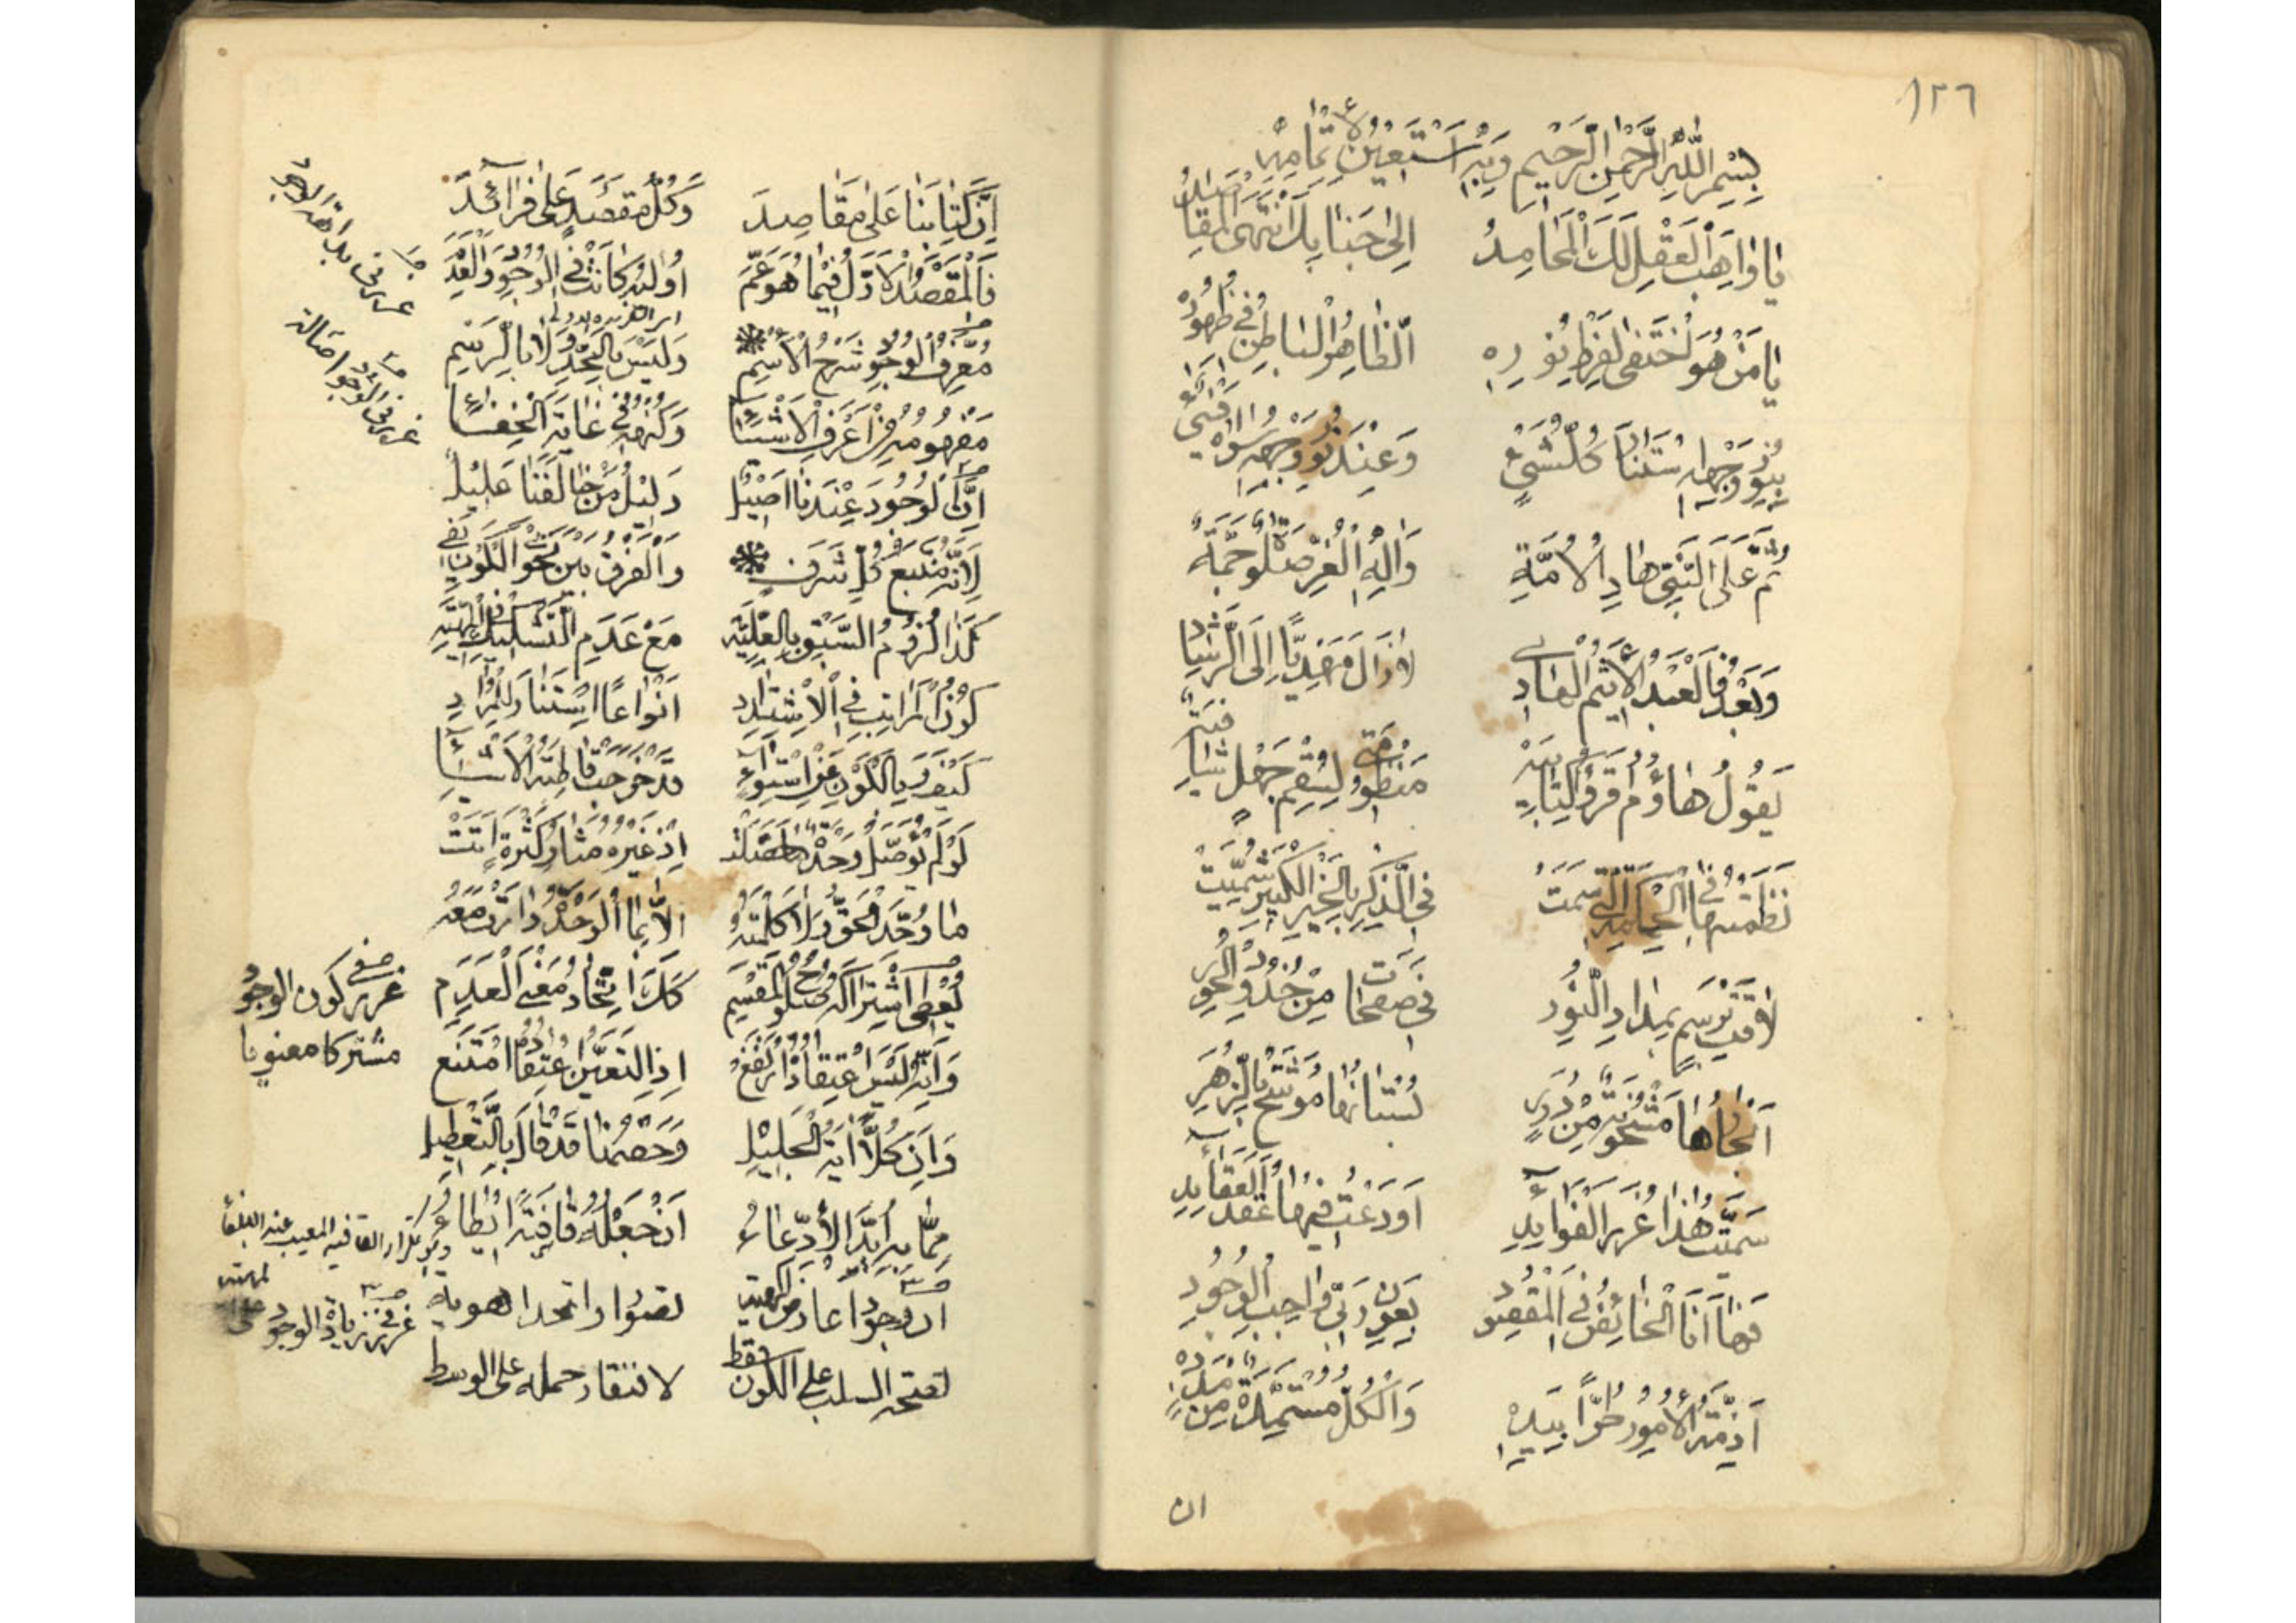 ١٢٦
بِسْمِ اللّٰهِ الرَّحْمٰنِ الرَّحِيمِ وَبِهِ أَسْتَعِينُ لِإِتْمَامِهِ
يا واهِبَ العَقْلِ لَكَ المَحامِدُ إلى جَنابِكَ انْتَهَى المَقاصِدُ
يا مَنْ هُوَ اخْتَفى لِفَرْطِ نُورِهِ الظّاهِرُ الباطِنُ في ظُهُورِهِ
بِنُورِ وَجْهِهِ اسْتَنارَ كُلُّ شَيْءٍ وَعِنْدَ نُورِ وَجْهِهِ سِواهُ فَيْءٌ
ثُمَّ عَلَى النَّبِيِّ هادِ الأُمَّةِ وَآلِهِ الغُرِّ صَلوةٌ جَمَّةٌ
وَبَعْدُ فَالعَبْدُ الأَثِيمُ الهادي لازالَ مَهْدِيًّا إلَى الرَّشادِ
يَقُولُ هاؤُمُ اقْرَؤُا كِتابِيَهْ مَنْظُومَتي لِسُقْمِ جَهْلٍ شافِيَةٌ
نَظَمْتُها في الحِكْمَةِ الَّتي سَمَتْ في الذِّكْرِ بِالخَيْرِ الكَثيرِ سُمِّيَتْ
لاقَتْ بِرَسْمٍ بِمِدادِ النُّورِ في صَفَحاتٍ مِنْ خُدُودِ الحُورِ
أَبْحاثُها مَشْحُونَةٌ مِنْ دُرَرٍ بُسْتانُها مُوَشَّحٌ بِالزَّهَرِ
سَمَّيْتُ هذا غُرَرَ الفَرائِدِ أَوْدَعْتُ فيها عُقَدَ العَقائِدِ
فَها أَنَا الخائِضُ في المَقْصُودِ بِعَوْنِ رَبّي واجِبِ الوُجُودِ
أَزِمَّةُ الأُمُورِ طُرًّا بِيَدِهِ وَالكُلُّ مُسْتَمِدَّةٌ مِنْ مَدَدِهِ
ان
إِنَّ كِتابَنا عَلى مَقاصِدَ وَكُلُّ مَقْصَدٍ عَلى فَرائِدَ
فَالمَقْصَدُ الأَوَّلُ فيما هُوَ عَمَّ أُولى كانَتْ في الوُجُودِ وَالعَدَمِ
غرر في بداهة الوجود
مُعَرِّفُ الوُجُودِ شَرْحُ الاسْمِ وَلَيْسَ بِالحَدِّ وَلا بِالرَّسْمِ
مَفْهُومُهُ مِنْ أَعْرَفِ الأَشْياءِ وَكُنْهُهُ في غايَةِ الخَفاءِ
غرر في اصالة الوجود
إِنَّ الوُجُودَ عِنْدَنا أَصيلٌ دَليلُ مَنْ خالَفَنا عَليلٌ
لِأَنَّهُ مَنْبَعُ كُلِّ شَرَفٍ وَالفَرْقُ بَيْنَ نَحْوَيِ الكَوْنِ يَفي
كَذا لُزُومُ السَّبْقِ بِالعِلِّيَّةِ مَعْ عَدَمِ التَّشْكيكِ في المَهِيَّةِ
كَوْنُ المَراتِبِ في الاشْتِدادِ أَنْواعًا اسْتَنارَ لِلْمُرادِ
كَيْفَ وَبِالكَوْنِ عَنِ اسْتِواءٍ قَدْ خَرَجَتْ قاطِبَةُ الأَشْياءِ
لَوْ لَمْ يُؤَصَّلْ وَحْدَةٌ ما حَصَلَتْ إِذْ غَيْرُهُ مَثارُ كَثْرَةٍ أَتَتْ
ما وُحِّدَ الحَقُّ وَلا كَلِمَتُهُ إِلّا بِما الوَحْدَةُ دارَتْ مَعَهُ
غرر في كون الوجود
مشتركا معنويا
يُعْطى اشْتِراكَهُ صُلُوحُ المَقْسَمِ كَذَلِكَ اتِّحادُ مَعْنَى العَدَمِ
وَأَنَّهُ لَيْسَ اعْتِقادُهُ ارْتَفَعَ إِذِ التَّعَيُّنُ اعْتِقادُهُ امْتَنَعَ
وَأَنَّ كُلًّا آيَةُ الجَليلِ وَخَصْمُنا قَدْ قالَ بِالتَّعْطيلِ
مِمّا بِهِ أُيِّدَ الادِّعاءُ أَنْ جَعْلُهُ قافِيَةً إِيطاءُ
وهو تكرار القافيه المعيب عند البلغاء
غرر في زيادة الوجود على المهية
ان الوجود عارض المهية تصورا واتحدا هوية
لصحة السلب على الكون فقط لافتقار حمله على الوسط